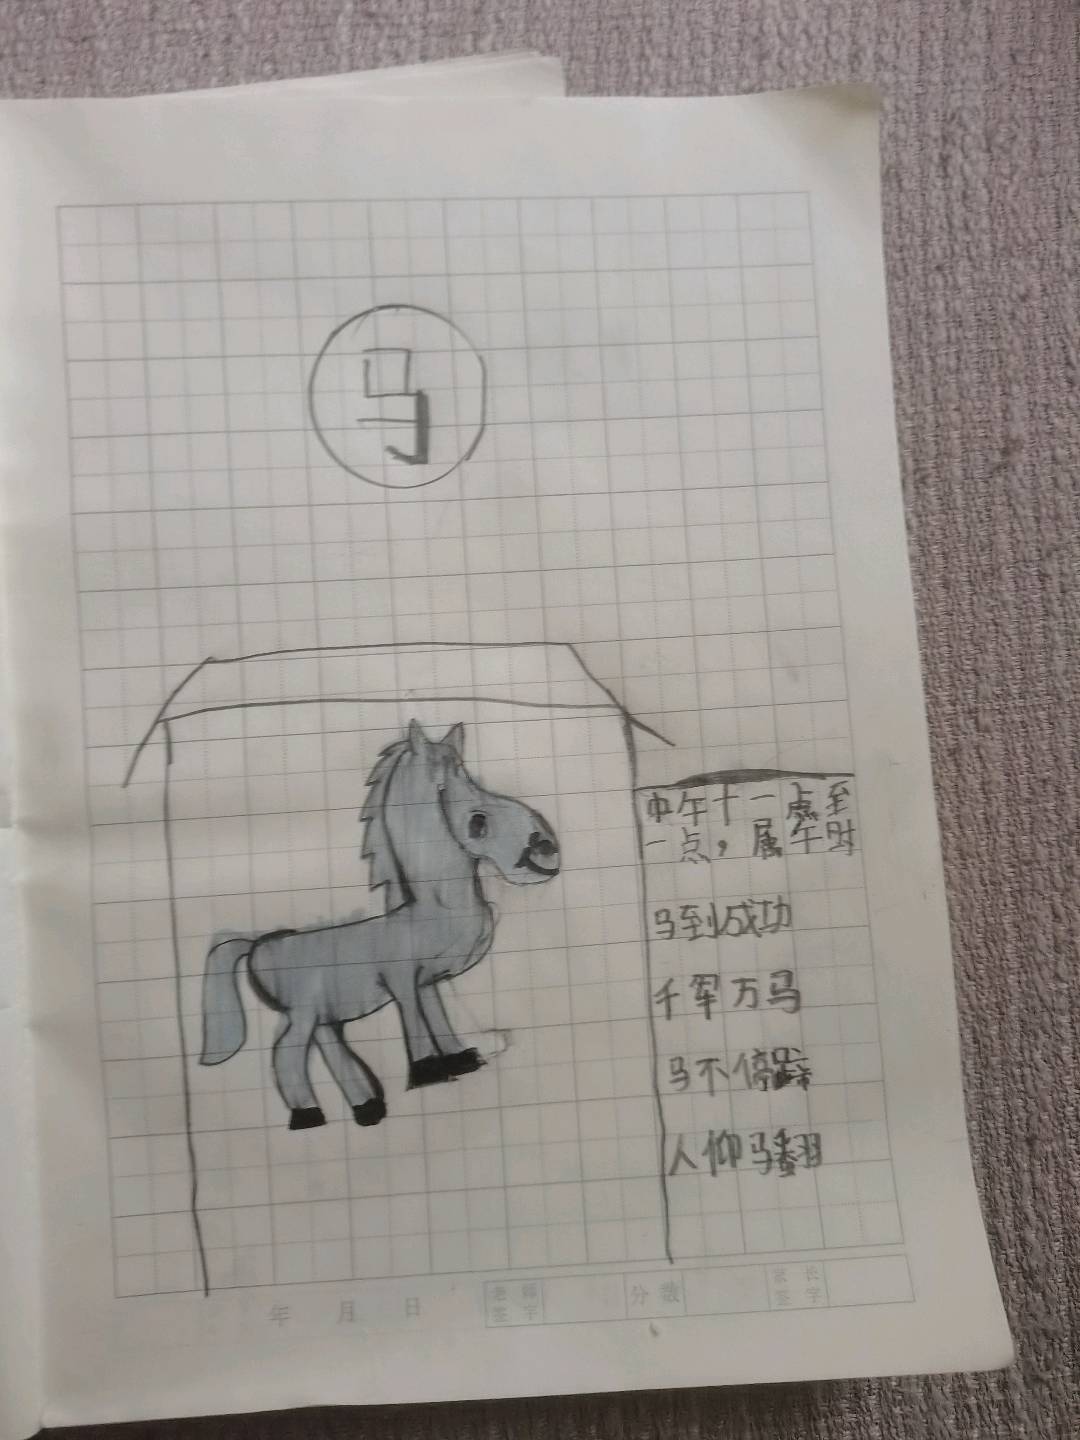 马
中午十一点至
一点，属午时
马到成功
千军万马
马不停蹄
人仰马翻
年 月 日
老师
签字
分数
家长
签字